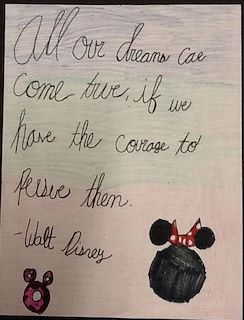 All our dreams can
come true, if we
have the courage to
persue them.
-Walt Disney